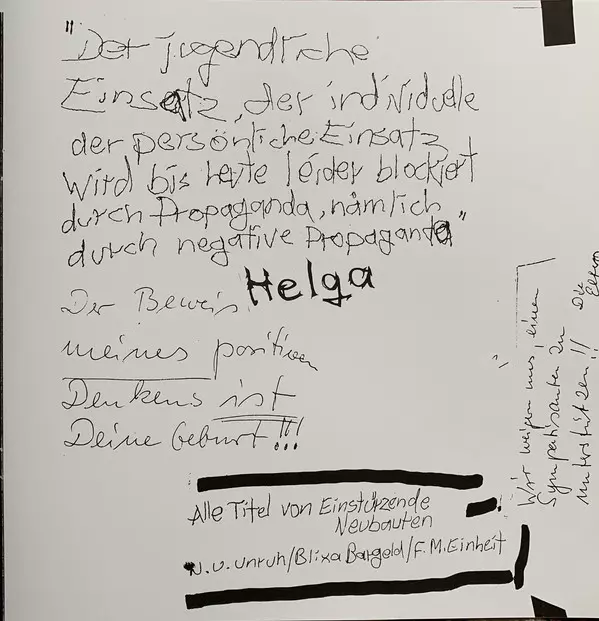 "Der jugendliche
Einsatz, der individuelle
der persönliche Einsatz
wird bis heute leider blockiert
durch Propaganda, nämlich
durch negative Propaganda"
Helga
Der Beweis
meines positiven
Denkens ist
Deine Geburt!!!
Alle Titel von Einstürzende
Neubauten
N.U. Unruh/Blixa Bargeld/F.M. Einheit
Wir weigern uns, einen
Sympathisanten zu
unterstützen!! Die
Eltern